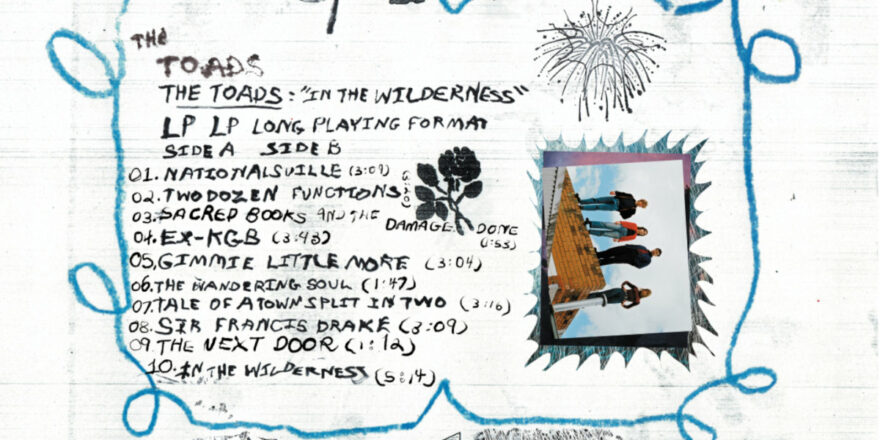 THE
TOADS
THE TOADS: "IN THE WILDERNESS"
LP LP LONG PLAYING FORMAT
SIDE A SIDE B
01. NATIONALSVILLE (3:09)
02. TWO DOZEN FUNCTIONS
03. SACRED BOOKS AND THE DAMAGE DONE (1:53)
04. EX-KGB (3:43)
05. GIMMIE LITTLE MORE (3:04)
06. THE WANDERING SOUL (1:47)
07. TALE OF A TOWN SPLIT IN TWO (3:16)
08. SIR FRANCIS DRAKE (3:09)
09. THE NEXT DOOR (1:12)
10. IN THE WILDERNESS (5:14)